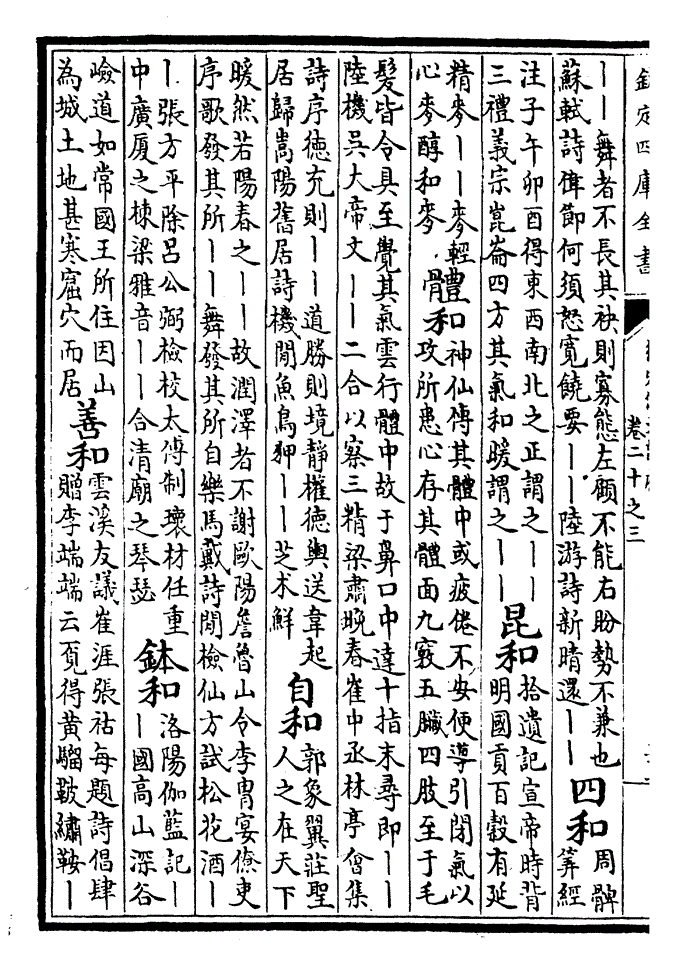 欽定四庫全書
卷二十之三
丨丨舞者不長其袂則寡態左顧不能右盼勢不兼也 四和 周髀
蘇軾詩偉節何須怒寬饒要丨丨陸游詩新晴還丨丨 筭經
注子午卯酉得東西南北之正謂之丨丨 昆和 拾遺記宣帝時背
三禮義宗崑崙四方其氣和暖謂之丨丨 明國貢百穀有延
精麥丨丨麥輕 體和 神仙傳其體中或疲倦不安便導引閉氣以
心麥醇和麥 骨和 攻所患心存其體面九竅五臟四肢至于毛
髮皆令具至覺其氣雲行體中故于鼻口中達十指末尋即丨丨
陸機吳大帝文丨丨二合以察三精梁肅晚春崔中丞林亭會集
詩序德充則丨丨道勝則境靜權德輿送韋起 自和 郭象翼莊聖
居歸嵩陽舊居詩機閒魚鳥狎丨丨芝术鮮 人之在天下
暖然若陽春之丨丨故潤澤者不謝歐陽詹魯山令李胄宴僚吏
序歌發其所丨丨舞發其所自樂馬戴詩閒檢仙方試松花酒丨
丨張方平除呂公弼檢校太傅制壞材任重 鉢和 洛陽伽藍記丨
中廣厦之棟梁雅音丨丨合清廟之琴瑟 丨國高山深谷
嶮道如常國王所住因山 善和 雲溪友議崔涯張祜每題詩倡肆
為城土地甚寒窟穴而居 贈李端端云覔得黄騮鞁繡鞍丨